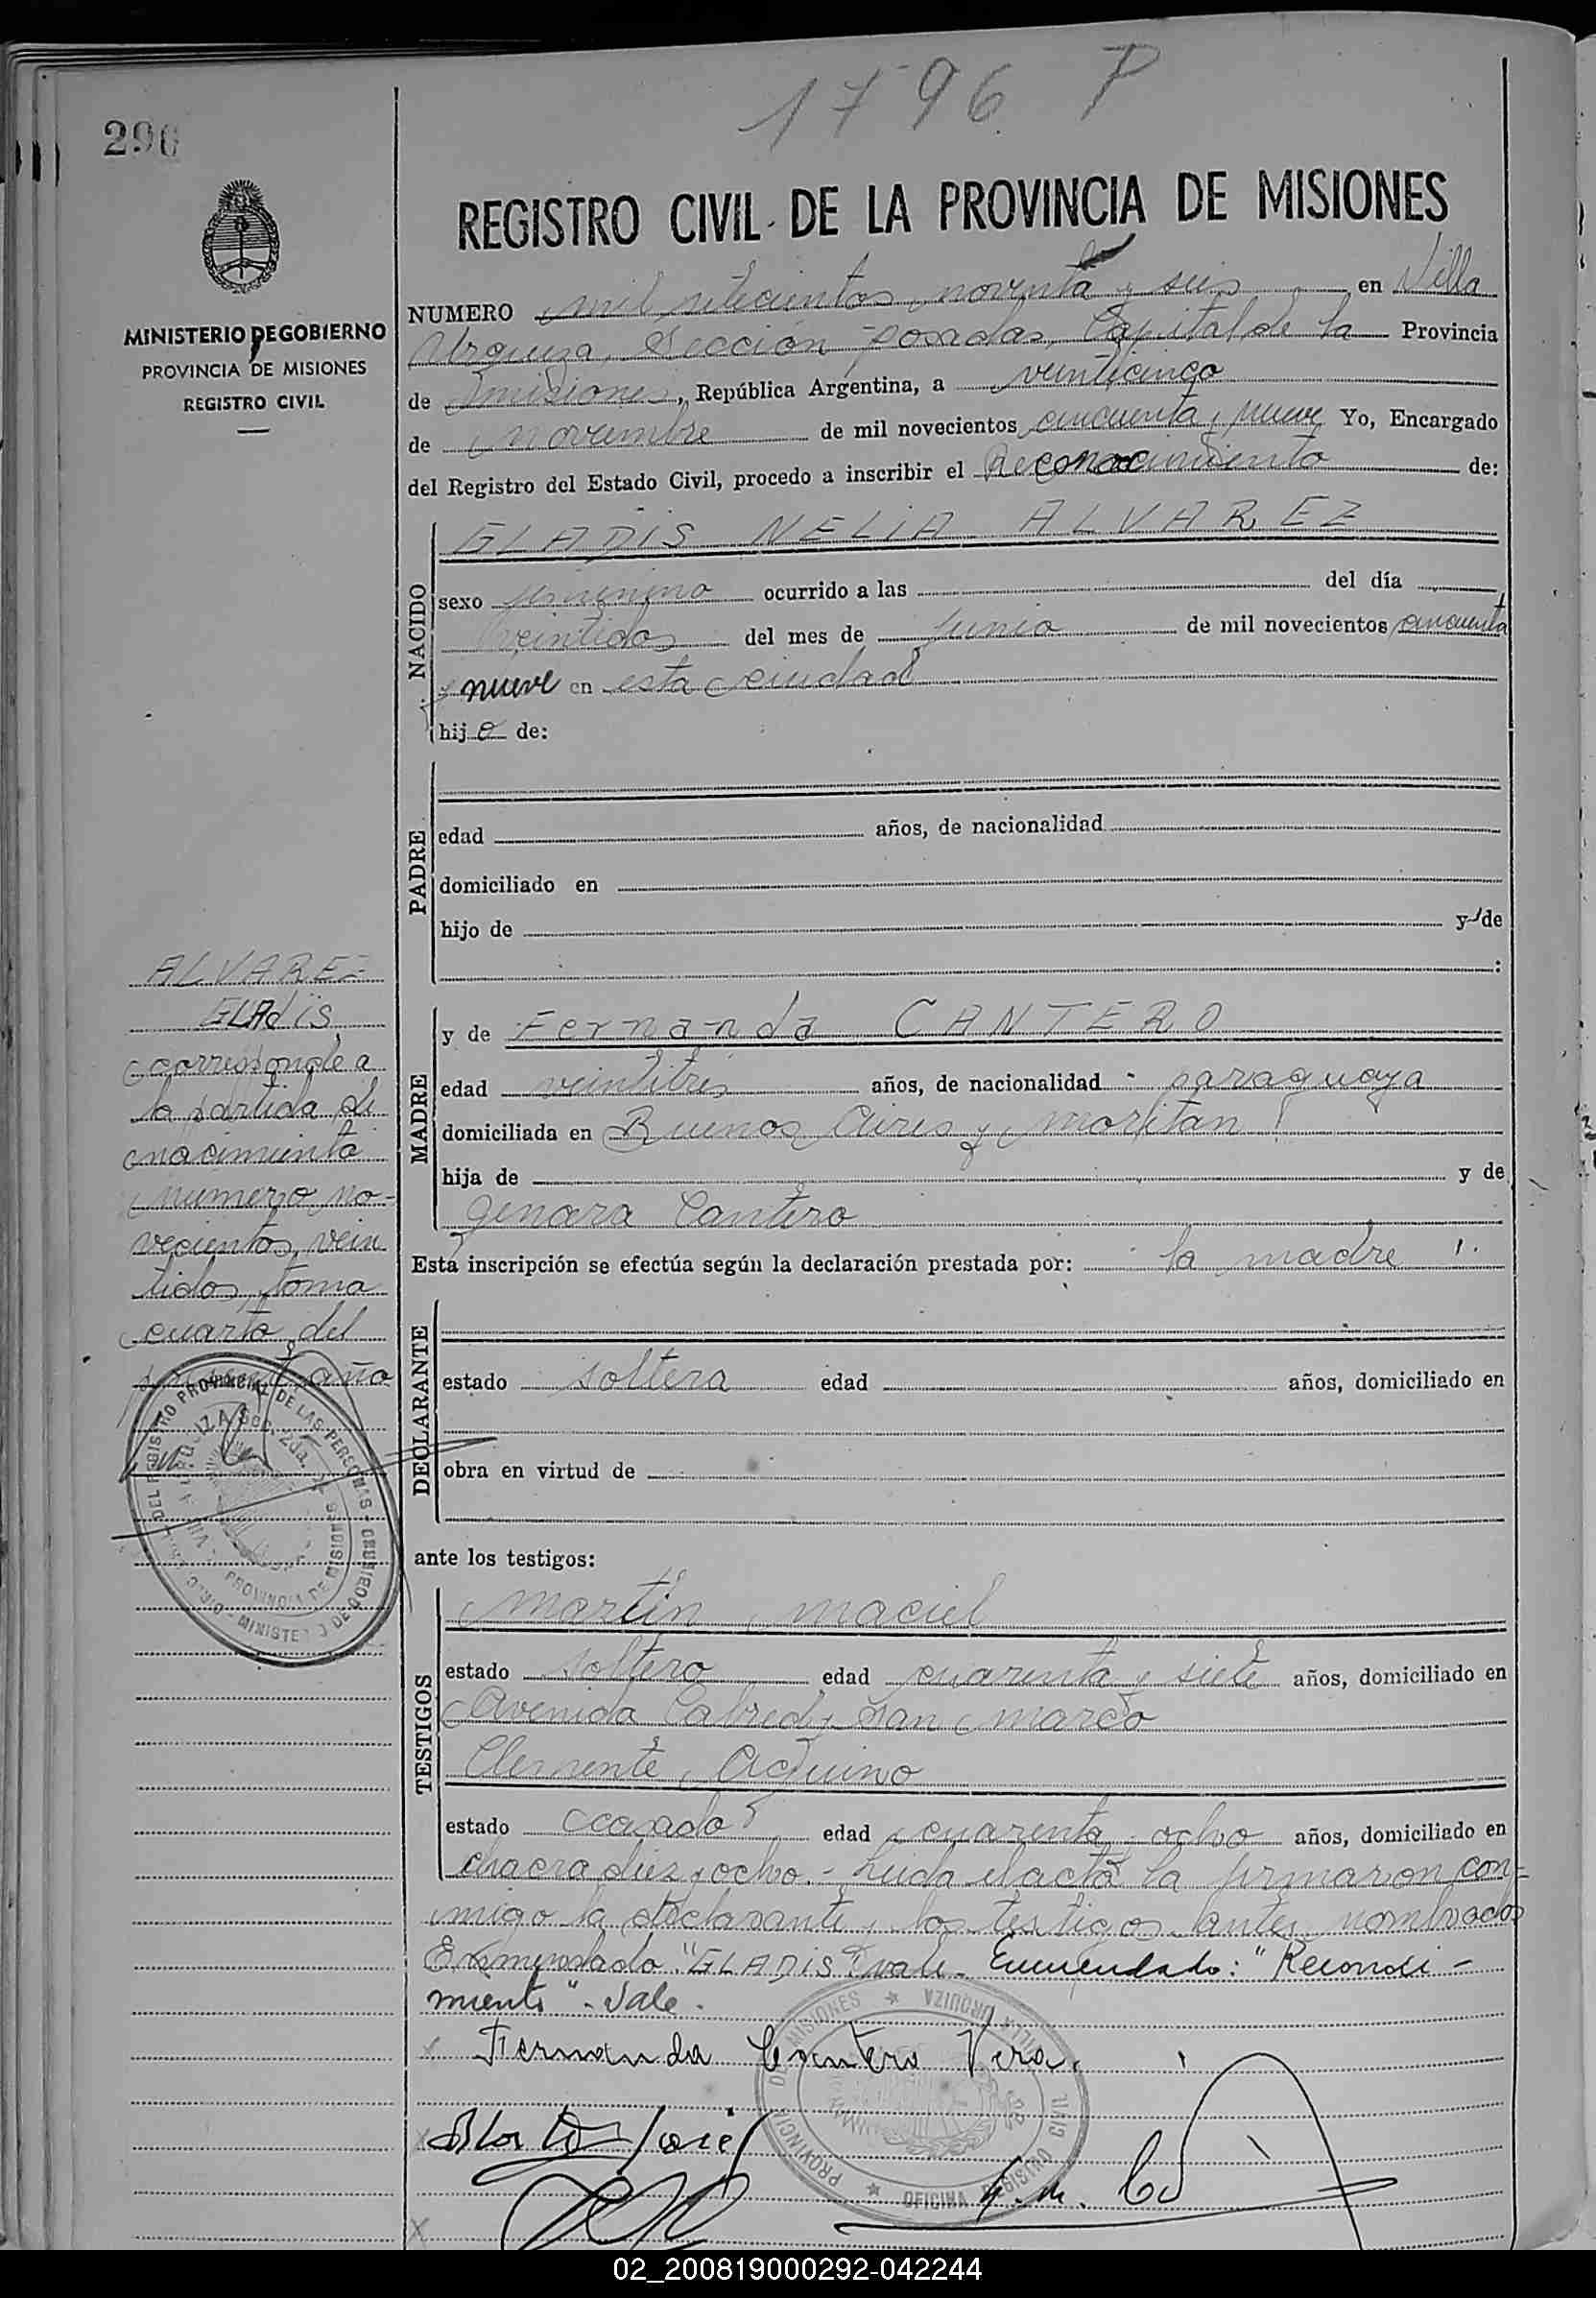 1796 P
290
REGISTRO CIVIL DE LA PROVINCIA DE MISIONES
MINISTERIO DE GOBIERNO
PROVINCIA DE MISIONES
REGISTRO CIVIL
NUMERO mil setecientos noventa y seis en Villa
Urquiza, Sección Posadas, Capital de la Provincia
de Misiones, República Argentina, a veinticinco
de noviembre de mil novecientos cincuenta y nueve Yo, Encargado
del Registro del Estado Civil, procedo a inscribir el Reconocimiento de:
NACIDO
GLADIS NELIA ALVAREZ
sexo femenino ocurrido a las del día
veintidos del mes de junio de mil novecientos cincuenta
y nueve en esta ciudad
hija de:
PADRE
edad años, de nacionalidad
domiciliado en
hijo de y de
:
ALVAREZ
GLAdiS
corresponde a
la partida de
nacimiento
numero no-
vecientos vein
tidos, tomo
cuarto del
presente año
MADRE
y de Fernanda CANTERO
edad veintitres años, de nacionalidad paraguaya
domiciliada en Buenos Aires y
hija de y de
Genara Cantero
Esta inscripción se efectúa según la declaración prestada por: la madre
DECLARANTE
estado soltera edad años, domiciliado en
obra en virtud de
ante los testigos:
TESTIGOS
Martin Maciel
estado soltero edad cuarenta y siete años, domiciliado en
Avenida Cabred y San Marco
Clemente Aquino
estado casado edad cuarenta y ocho años, domiciliado en
chacra diez y ocho.- Leida el acta la firmaron con-
migo la declarante y los testigos antes nombrados
Enmendado "GLADIS" vale - Enmendado: "Reconoci-
miento" - Vale -
Fernanda Cantero Vera.
DEL REGISTRO PROVINCIAL DE LAS PERSONAS - MINISTERIO DE GOBIERNO
VILLA URQUIZA Sec. 2da.
PROVINCIA DE MISIONES
PROVINCIA DE MISIONES ★ VILLA URQUIZA
OFICINA REGISTRO CIVIL ★
02_200819000292-042244